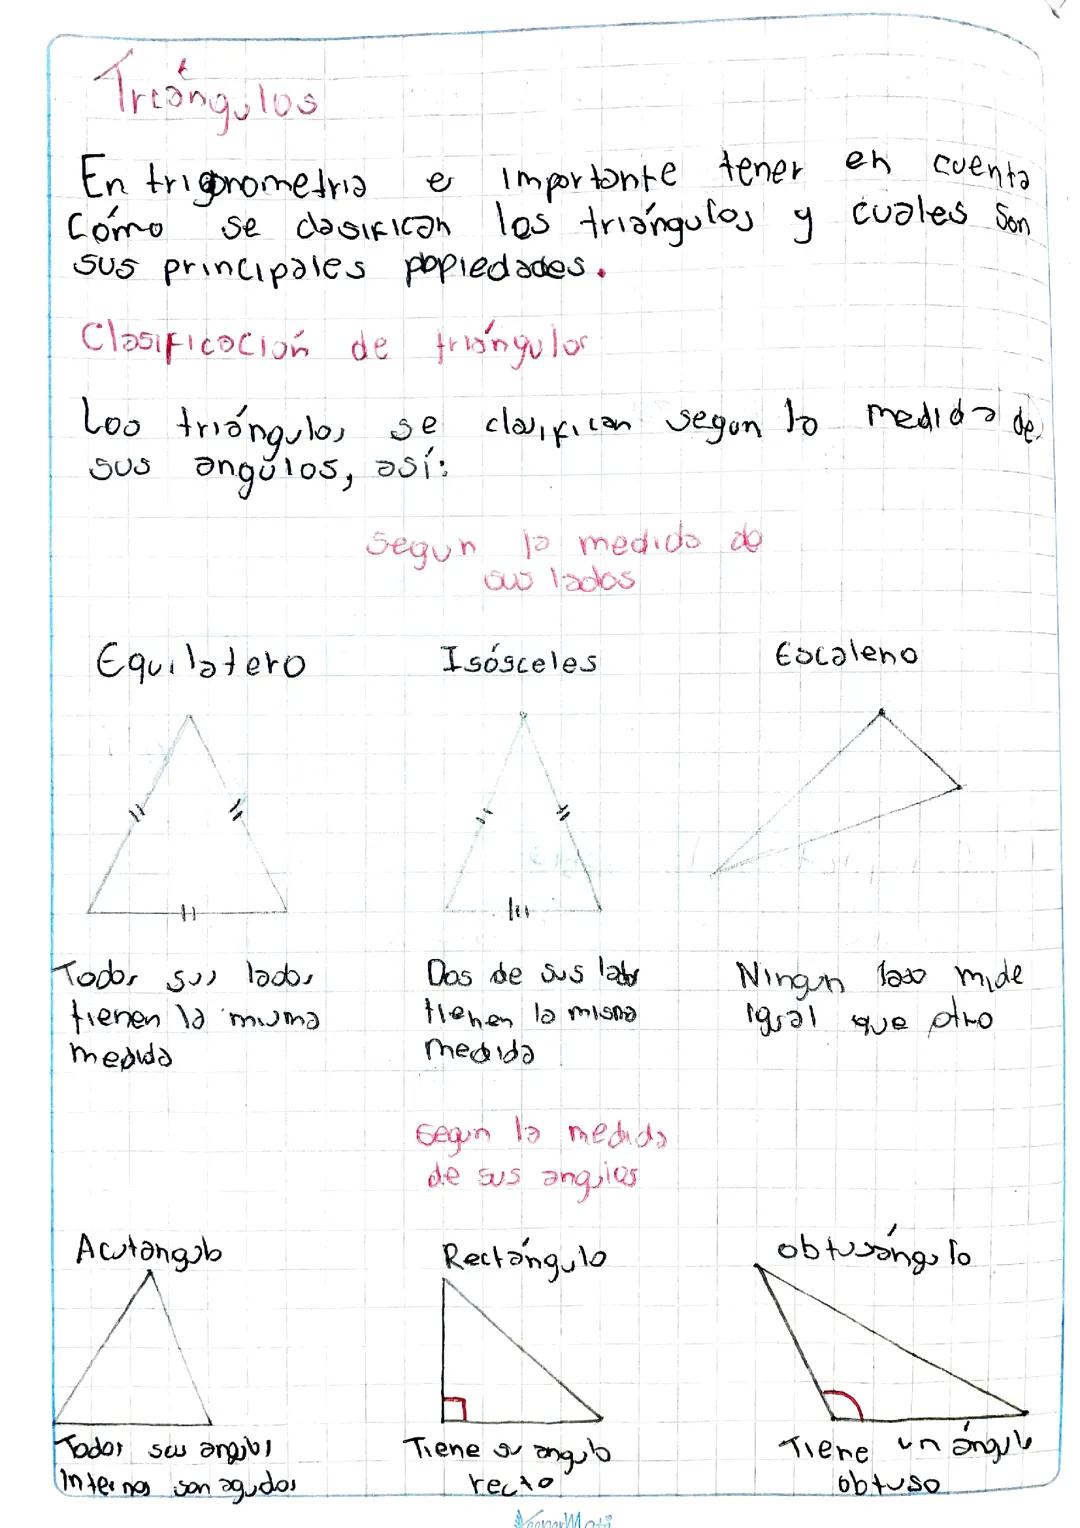 Triángulos
En trigonometria e importante tener en cuenta
Cómo se clasifican los triángulos y cuales son
sus principales popiedades.
Clasificación de triángulos
Los triángulos se clasifican segun la medida de
sus angúlos, así:
Segun la medida de
sus lados
Equilatero Isósceles Escaleno
Todos sus lados
tienen la misma
medida
Dos de sus lados
tienen la misma
medida
Ningun lado mide
igual que otro
Segun la medida
de sus angulos
Acutangulo Rectángulo obtusángulo
Todos sus angulos
internos son agudos
Tiene su angulo
recto
Tiene un ángulo
obtuso